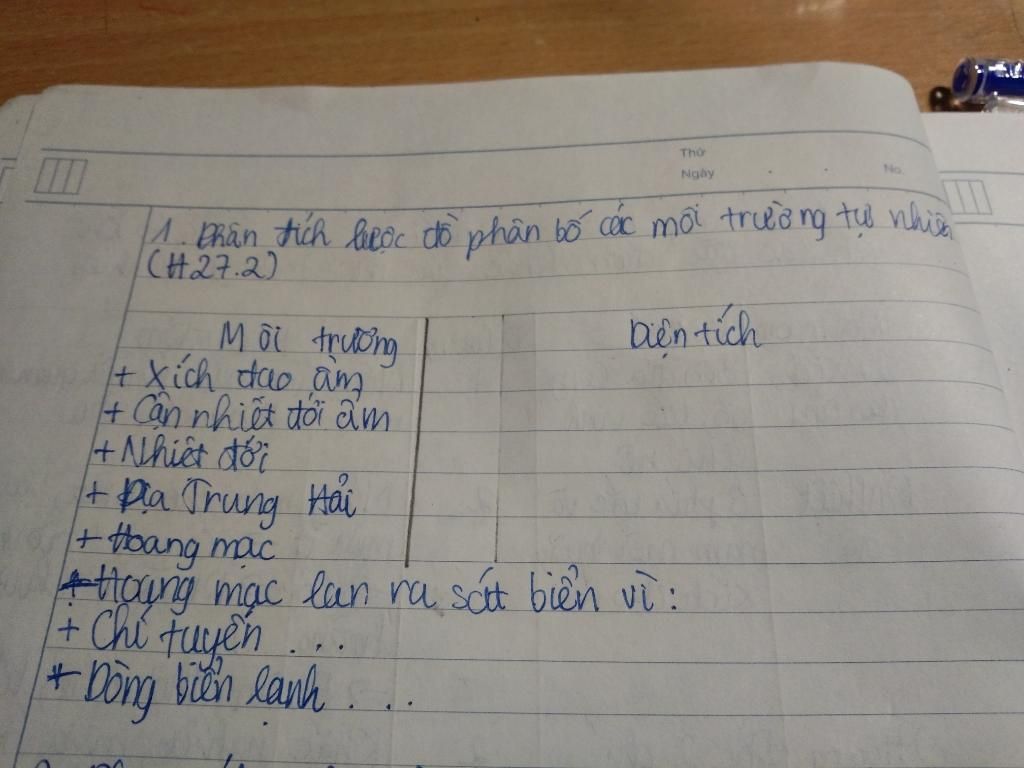 Thứ
Ngày . . No.
1. Phân tích lược đồ phân bố các môi trường tự nhiên
(H27.2)
Môi trường Diện tích
+ Xích đạo ẩm
+ Cận nhiệt đới ẩm
+ Nhiệt đới
+ Địa Trung Hải
+ Hoang mạc
+ Hoang mạc lan ra sát biển vì:
+ Chí tuyến ...
+ Dòng biển lạnh ...